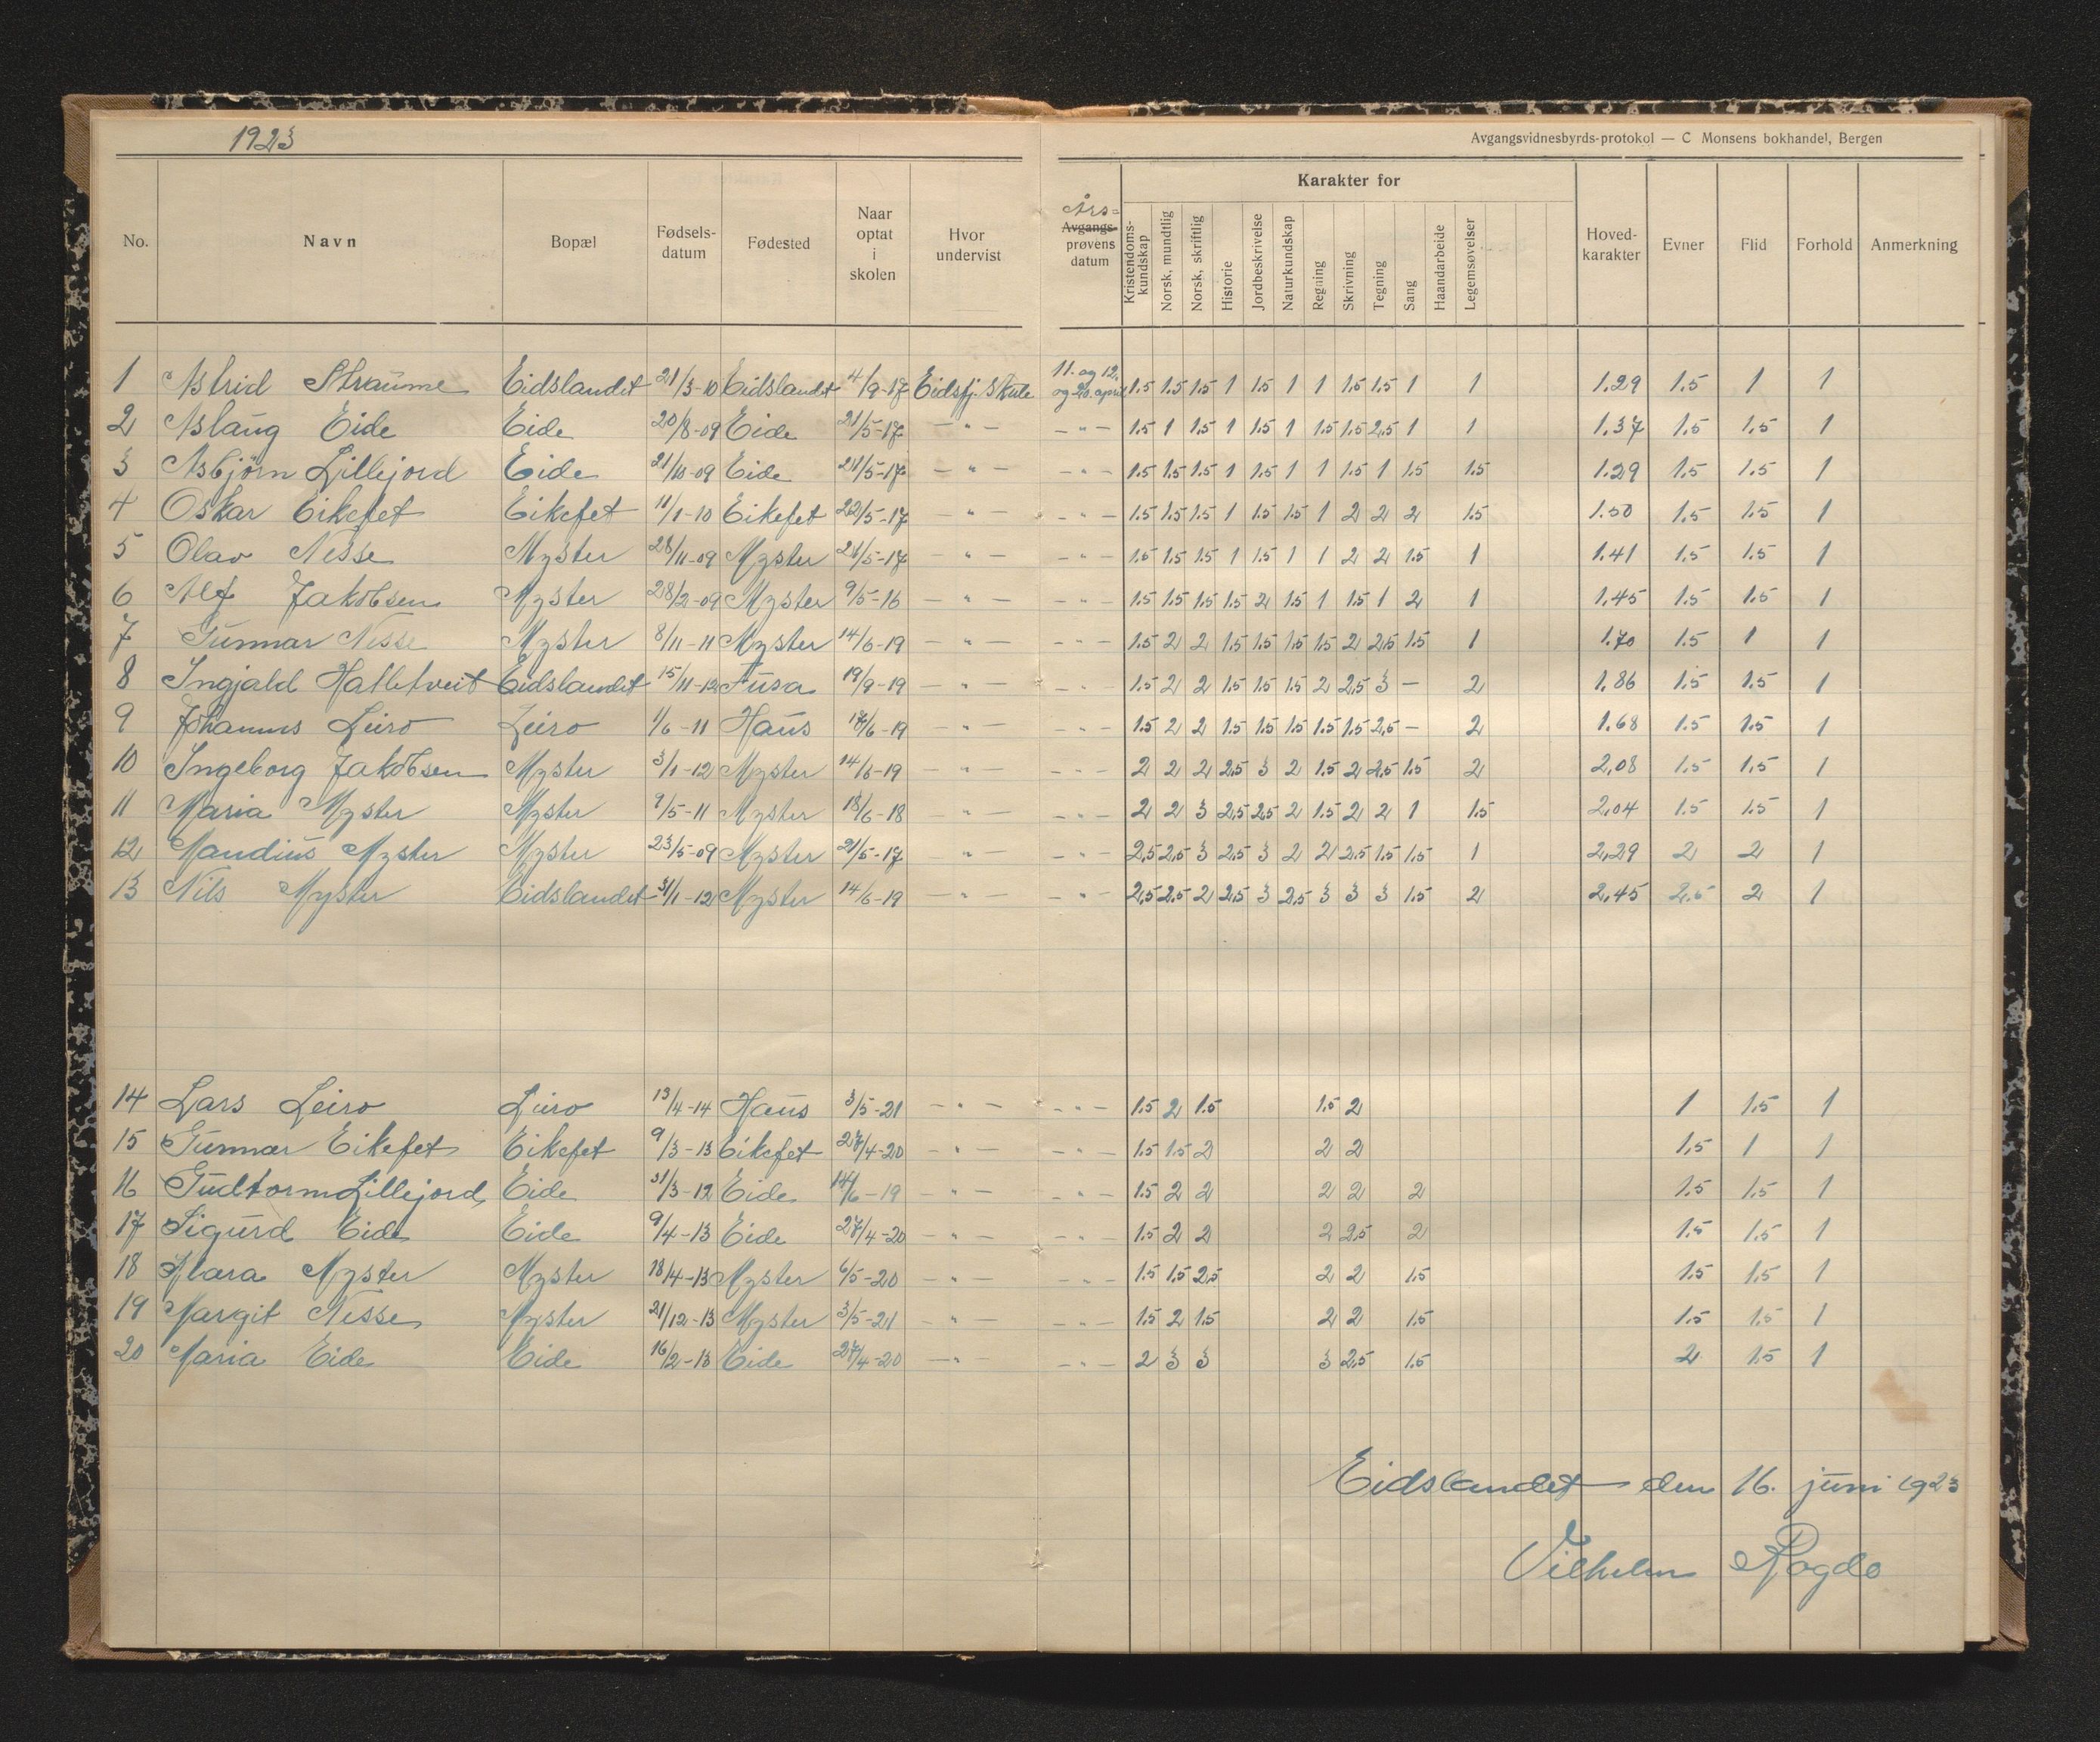 1923
Avgangsvidnesbyrds-protokol — C Monsens bokhandel, Bergen
No. Navn Bopæl Fødsels-datum Fødested Naar optat i skolen Hvor undervist Års= Avgangs-prøvens datum Karakter for Kristendoms-kundskap Norsk, mundtlig Norsk, skriftlig Historie Jordbeskrivelse Naturkundskap Regning Skrivning Tegning Sang Haandarbeide Legemsøvelser Hoved-karakter Evner Flid Forhold Anmerkning
1 Astrid Straume Eidslandet 21/3-10 Eidslandet 4/9-17 Eidsfj. Skule 11. og 12. og 20. april 1.5 1.5 1.5 1 1.5 1 1 1.5 1.5 1 1 1.29 1.5 1 1
2 Aslaug Eide Eide 20/8-09 Eide 21/5-17 — " — — " — 1.5 1 1.5 1 1.5 1 1.5 1.5 2.5 1 1 1.37 1.5 1.5 1
3 Asbjörn Lillejord Eide 21/10-09 Eide 21/5-17 — " — — " — 1.5 1.5 1.5 1 1.5 1 1 1.5 1 1.5 1.5 1.29 1.5 1.5 1
4 Oskar Eikefet Eikefet 11/1-10 Eikefet 22/5-17 — " — — " — 1.5 1.5 1.5 1 1.5 1.5 1 2 2 2 1.5 1.50 1.5 1.5 1
5 Olav Nesse Myster 28/11-09 Myster 21/5-17 — " — — " — 1.5 1.5 1.5 1 1.5 1 1 2 2 1.5 1 1.41 1.5 1.5 1
6 Alf Jakobsen Myster 28/2-09 Myster 9/5-16 — " — — " — 1.5 1.5 1.5 1.5 2 1.5 1 1.5 1 2 1 1.45 1.5 1.5 1
7 Gunnar Nesse Myster 8/11-11 Myster 14/6-19 — " — — " — 1.5 2 2 1.5 1.5 1.5 1.5 2 2.5 1.5 1 1.70 1.5 1 1
8 Ingjald Hatletveit Eidslandet 15/11-12 Fusa 19/9-19 — " — — " — 1.5 2 2 1.5 1.5 1.5 2 2.5 3 — 2 1.86 1.5 1.5 1
9 Johannes Leiro Leiro 1/6-11 Haus 17/6-19 — " — — " — 1.5 2 2 1.5 1.5 1.5 1.5 1.5 2.5 — 2 1.68 1.5 1.5 1
10 Ingeborg Jakobsen Myster 3/1-12 Myster 14/6-19 — " — — " — 2 2 2 2.5 3 2 1.5 2 2.5 1.5 2 2,08 1.5 1.5 1
11 Maria Myster Myster 9/5-11 Myster 18/6-18 — " — — " — 2 2 3 2,5 2,5 2 1.5 2 2 1 1.5 2,04 1.5 1.5 1
12 Mandius Myster Myster 23/5-09 Myster 21/5-17 — " — — " — 2,5 2,5 3 2,5 3 2 2 2.5 1.5 1.5 1 2,29 2 2 1
13 Nils Myster Eidslandet 31/1-12 Myster 14/6-19 — " — — " — 2,5 2,5 2 2,5 3 2,5 3 3 3 1.5 2 2,45 2.5 2 1
14 Lars Leiro Leiro 13/4-14 Haus 3/5-21 — " — — " — 1.5 2 1.5 1.5 2 1 1.5 1
15 Gunnar Eikefet Eikefet 9/3-13 Eikefet 27/4-20 — " — — " — 1.5 1.5 2 2 2 1,5 1 1
16 Gudtorm Lillejord Eide 31/3-12 Eide 14/6-19 — " — — " — 1.5 2 2 2 2 2 1.5 1.5 1
17 Sigurd Eide Eide 9/4-13 Eide 27/4-20 — " — — " — 1.5 2 2 2 2.5 2 1.5 1.5 1
18 Klara Myster Myster 18/4-13 Myster 6/5-20 — " — — " — 1.5 1.5 2.5 2 2 1.5 1.5 1.5 1
19 Margit Nesse Myster 21/12-13 Myster 3/5-21 — " — — " — 1.5 2 1.5 2 2 1.5 1.5 1.5 1
20 Maria Eide Eide 16/2-13 Eide 27/4-20 — " — — " — 2 3 3 3 2.5 1.5 2 1.5 1
Eidslandet den 16. juni 1923
Vilhelm Rogde